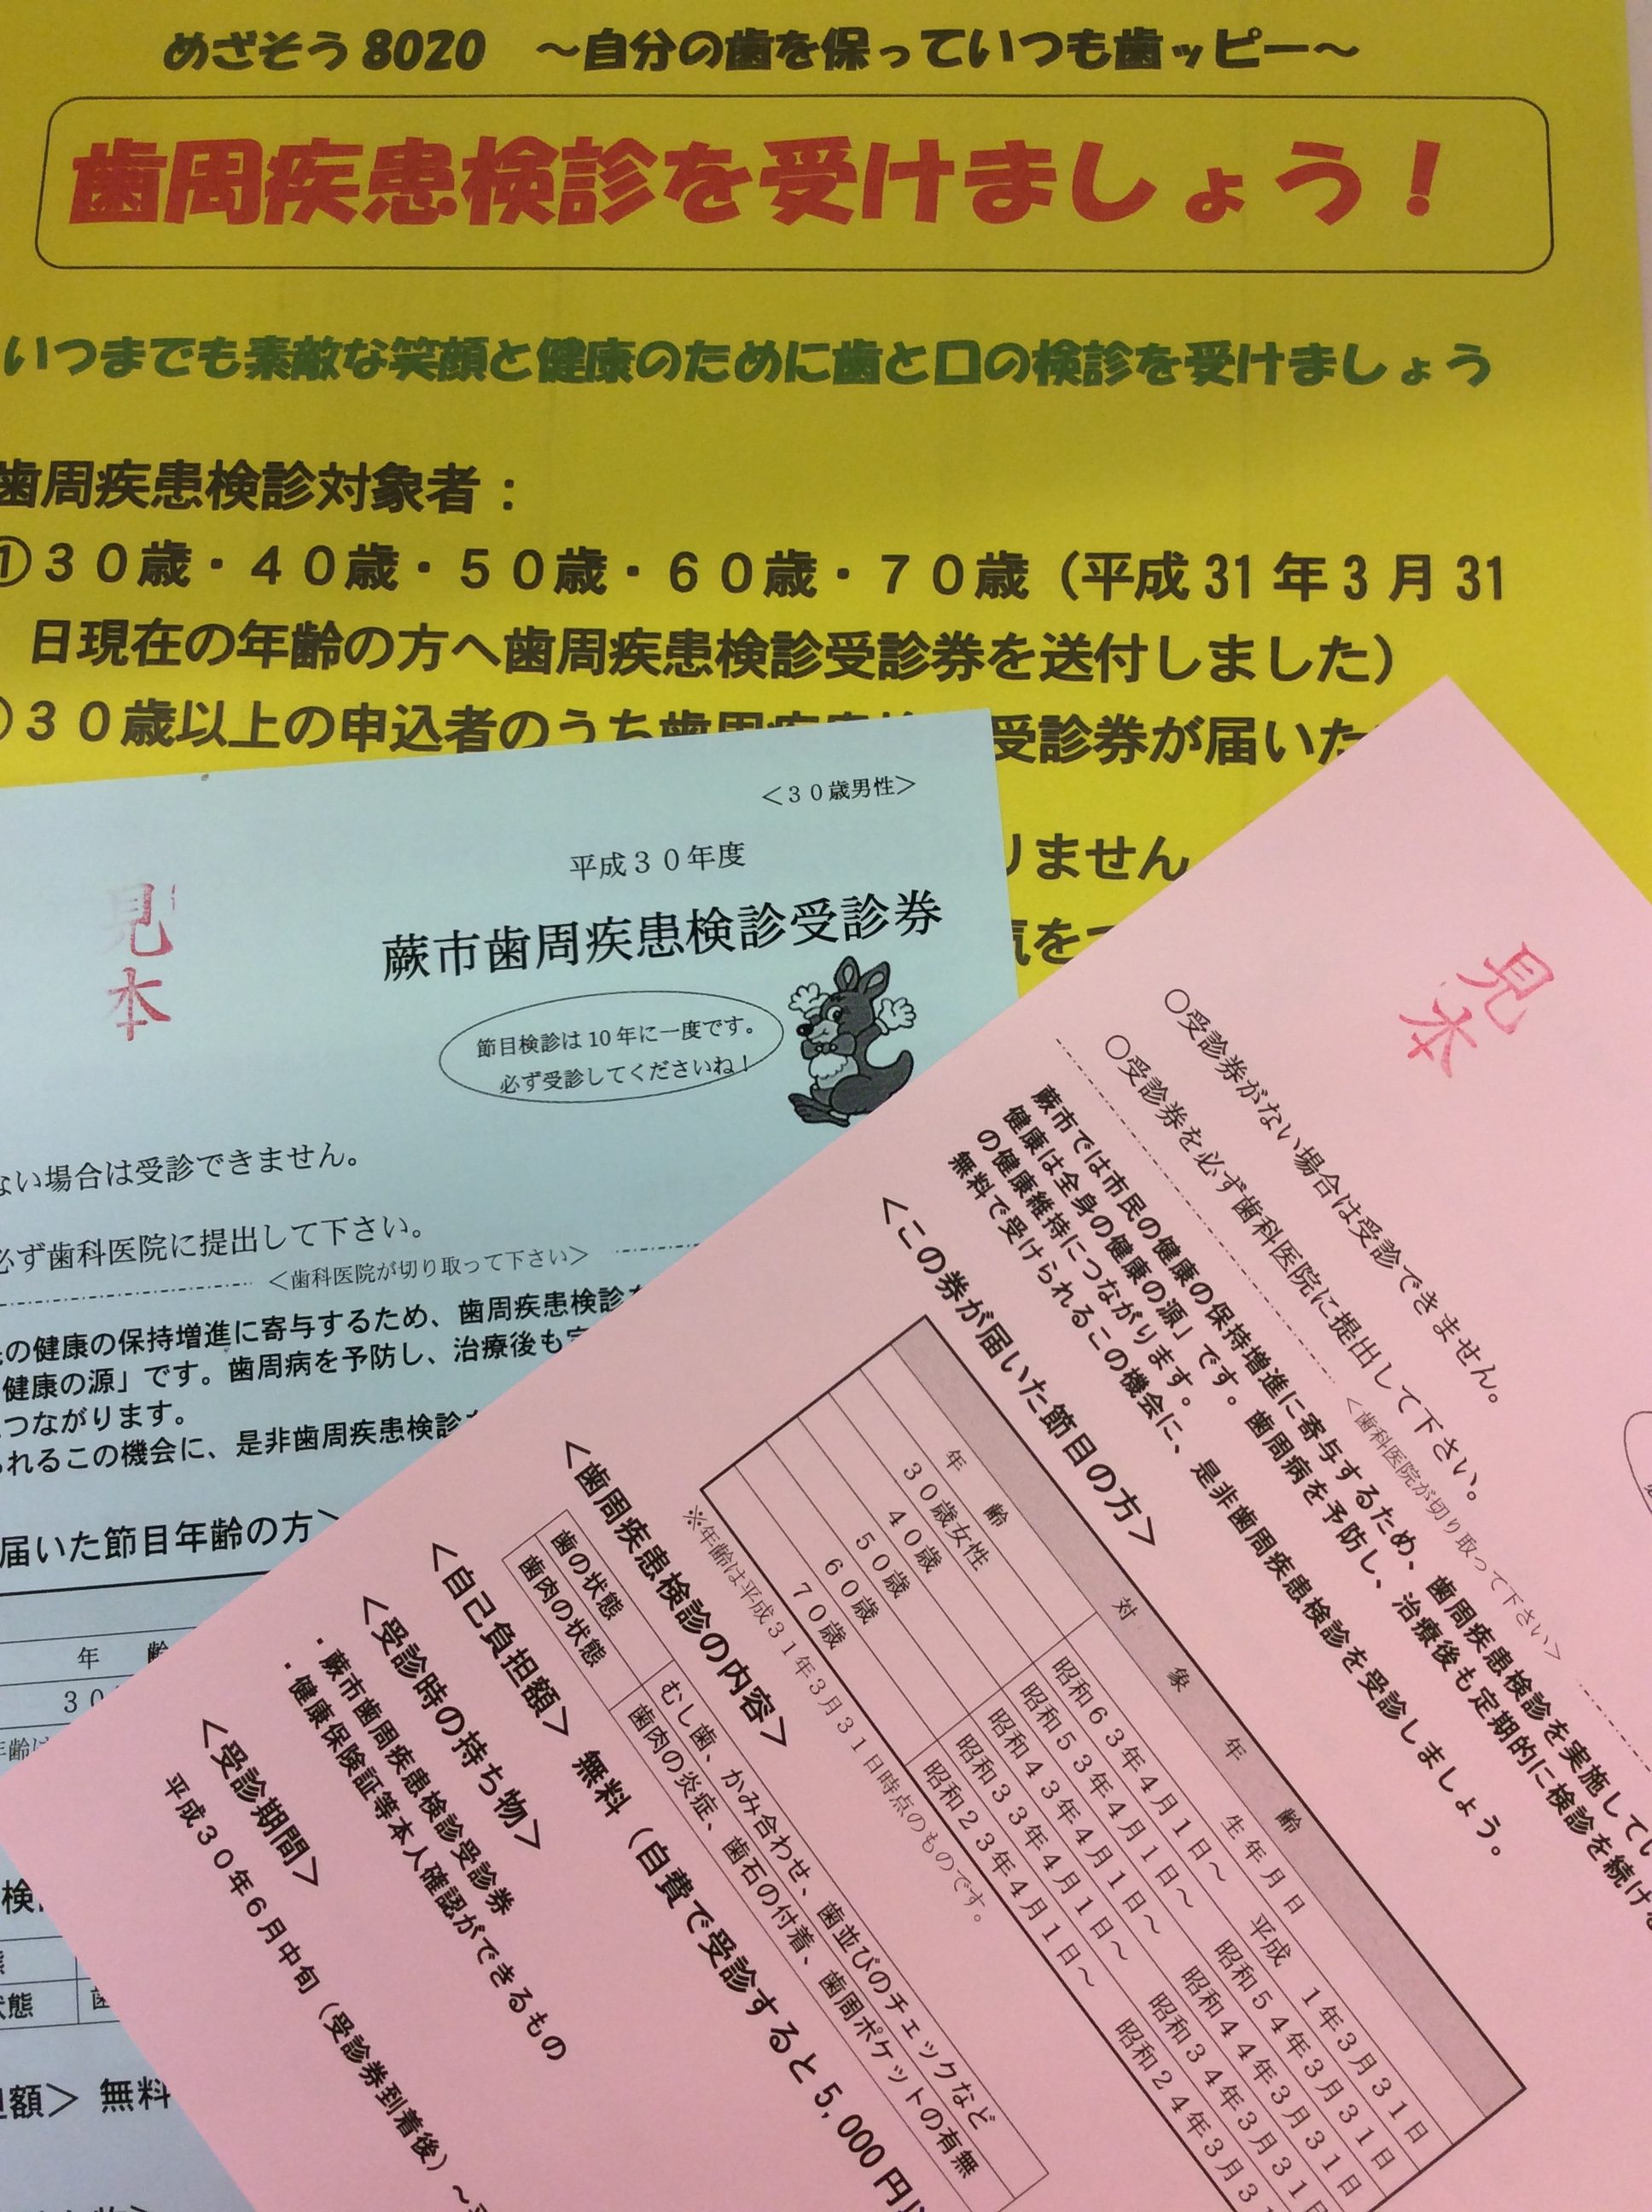 めざそう8020　～自分の歯を保っていつも歯ッピー～
歯周疾患検診を受けましょう！
いつまでも素敵な笑顔と健康のために歯と口の検診を受けましょう
歯周疾患検診対象者：
①３０歳・４０歳・５０歳・６０歳・７０歳（平成31年3月31
日現在の年齢の方へ歯周疾患検診受診券を送付しました）
３０歳以上の申込者のうち歯周疾患検 受診券が届いた
りません
気をつ
＜３０歳男性＞
平成３０年度
蕨市歯周疾患検診受診券
見本
節目検診は10年に一度です。
必ず受診してくださいね！
ない場合は受診できません。
必ず歯科医院に提出して下さい。
＜歯科医院が切り取って下さい＞
の健康の保持増進に寄与するため、歯周疾患検診を
健康の源」です。歯周病を予防し、治療後も定
つながります。
れるこの機会に、是非歯周疾患検診を
届いた節目年齢の方＞
年　齢
３０
年齢は
検
態
状態
担額＞ 無料
見本
○受診券がない場合は受診できません。
○受診券を必ず歯科医院に提出して下さい。
＜歯科医院が切り取って下さい＞
蕨市では市民の健康の保持増進に寄与するため、歯周疾患検診を実施してい
健康は全身の健康の源」です。歯周病を予防し、治療後も定期的に検診を続ける
の健康維持につながります。
無料で受けられるこの機会に、是非歯周疾患検診を受診しましょう。
＜この券が届いた節目の方＞
対　象　年　齢
年　齢　生年月日
３０歳女性　昭和６３年４月１日～　平成　１年３月３１日
４０歳　昭和５３年４月１日～　昭和５４年３月３１日
５０歳　昭和４３年４月１日～　昭和４４年３月３１日
６０歳　昭和３３年４月１日～　昭和３４年３月３１日
７０歳　昭和２３年４月１日～　昭和２４年３月３１
※年齢は平成３１年３月３１日時点のものです。
＜歯周疾患検診の内容＞
歯の状態　むし歯、かみ合わせ、歯並びのチェックなど
歯肉の状態　歯肉の炎症、歯石の付着、歯周ポケットの有無
＜自己負担額＞ 無料（自費で受診すると5,000円
＜受診時の持ち物＞
・蕨市歯周疾患検診受診券
・健康保険証等本人確認ができるもの
＜受診期間＞
平成３０年６月中旬（受診券到着後）～